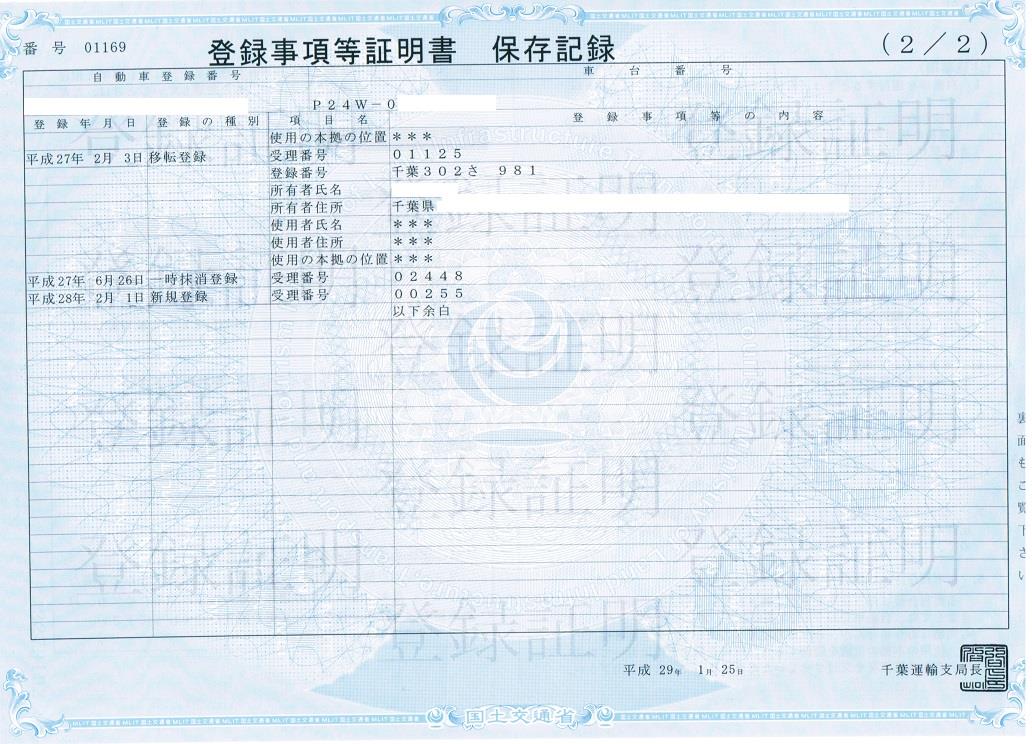 番号 01169
登録事項等証明書 保存記録
(2/2)
自動車登録番号 車台番号
P24W-0
登録年月日 登録の種別 項目名 登録事項等の内容
使用の本拠の位置 ***
平成27年 2月 3日 移転登録 受理番号 01125
登録番号 千葉302さ 981
所有者氏名
所有者住所 千葉県
使用者氏名 ***
使用者住所 ***
使用の本拠の位置 ***
平成27年 6月26日 一時抹消登録 受理番号 02448
平成28年 2月 1日 新規登録 受理番号 00255
以下余白
裏面もご覧下さい
平成 29年 1月 25日 千葉運輸支局長
国土交通省